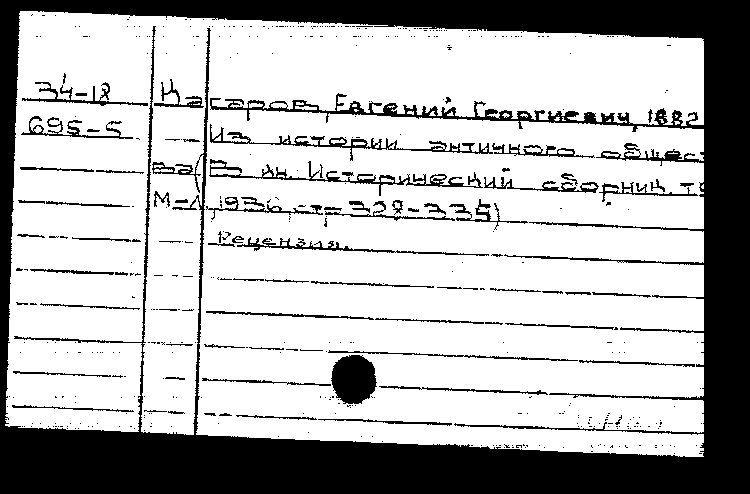 34-18 Кагаров, Евгений Георгиевич, 1882
695-5 Из истории античного общест
ва (В кн. Исторический сборник. т
М-Л, 1936, стр 328-335)
Рецензия.